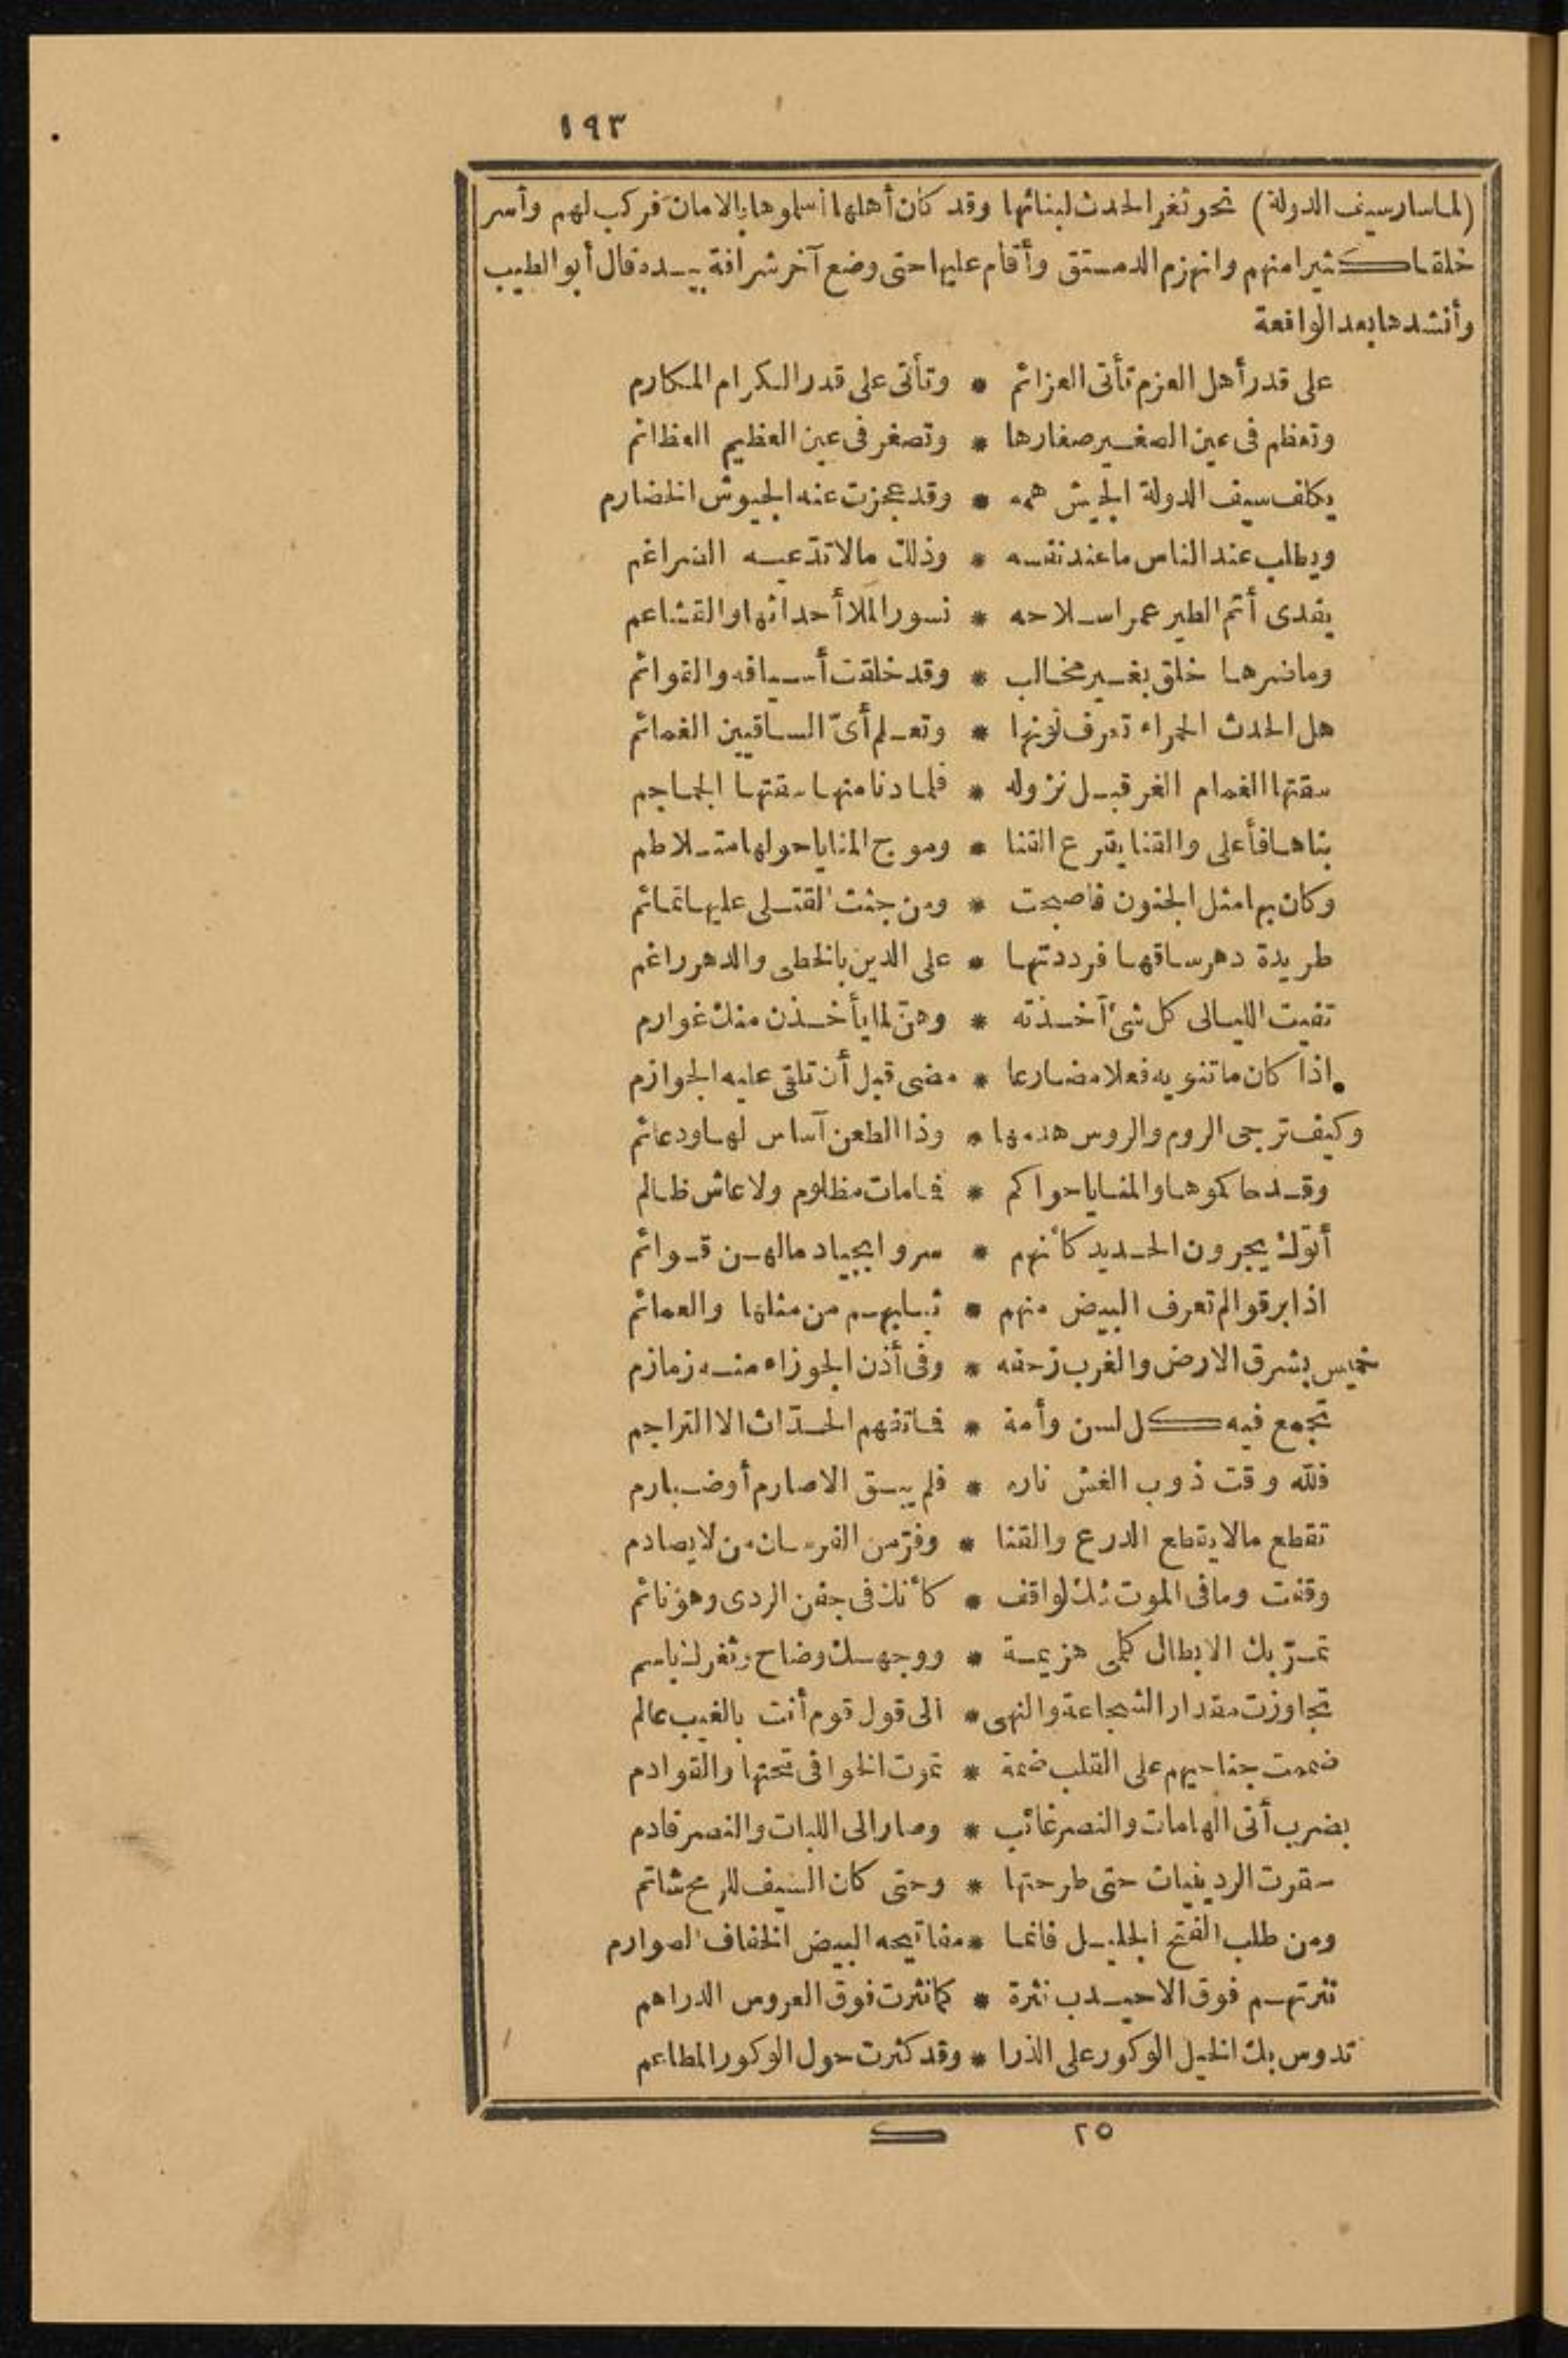 ١٩٣
(لما سار سيف الدولة) نحو ثغر الحدث لبنائها وقد كان أهلها أسلموها بالامان فركب لهم وأسر
خلقا كثيرا منهم وانهزم الدمستق وأقام عليها حتى وضع آخر شرافة بيده قال أبو الطيب
وأنشدها بعد الواقعة
على قدر أهل العزم تأتى العزائم * وتأتى على قدر الكرام المكارم
وتعظم فى عين الصغير صغارها * وتصغر فى عين العظيم العظائم
يكلف سيف الدولة الجيش همه * وقد عجزت عنه الجيوش الخضارم
ويطلب عند الناس ما عند نفسه * وذلك مالا تدّعيه الضراغم
يفدى أتم الطير عمرا سلاحه * نسور الملا أحداثها والقشاعم
وما ضرها خلق بغير مخالب * وقد خلقت أسيافه والقوائم
هل الحدث الحمراء تعرف لونها * وتعلم أىّ الساقيين الغمائم
سقتها الغمام الغر قبل نزوله * فلما دنا منها سقتها الجماجم
بناها فأعلى والقنا يقرع القنا * وموج المنايا حولها متلاطم
وكان بها مثل الجنون فاصبحت * ومن جثث القتلى عليها تمائم
طريدة دهر ساقها فرددتها * على الدين بالخطى والدهر راغم
تفيت الليالى كل شئ أخذته * وهنّ لما يأخذن منك غوارم
اذا كان ما تنويه فعلا مضارعا * مضى قبل أن تلقى عليه الجوازم
وكيف ترجى الروم والروس هدمها * وذا الطعن آساس لها ودعائم
وقد حاكموها والمنايا حواكم * فما مات مظلوم ولا عاش ظالم
أتوك يجرون الحديد كأنهم * سروا بجياد مالهن قوائم
اذا برقوا لم تعرف البيض منهم * ثيابهم من مثلها والعمائم
خميس بشرق الارض والغرب زحفه * وفى أذن الجوزاء منه زمازم
تجمع فيه كل لسن وأمة * فما تفهم الحدّاث الا التراجم
فلله وقت ذوب الغش ناره * فلم يبق الا صارم أو ضبارم
تقطع مالا يقطع الدرع والقنا * وفرّ من الفرسان من لا يصادم
وقفت وما فى الموت شك لواقف * كأنك فى جفن الردى وهو نائم
تمرّ بك الابطال كلمى هزيمة * ووجهك وضاح وثغرك باسم
تجاوزت مقدار الشجاعة والنهى * الى قول قوم أنت بالغيب عالم
ضممت جناحيهم على القلب ضمة * تموت الخوافى تحتها والقوادم
بضرب أتى الهامات والنصر غائب * وصار الى اللبات والنصر قادم
حقرت الردينيات حتى طرحتها * وحتى كان السيف للرمح شاتم
ومن طلب الفتح الجليل فانما * مفاتيحه البيض الخفاف الصوارم
نثرتهم فوق الاحيدب نثرة * كما نثرت فوق العروس الدراهم
تدوس بك الخيل الوكور على الذرا * وقد كثرت حول الوكور المطاعم
٢٥ ك